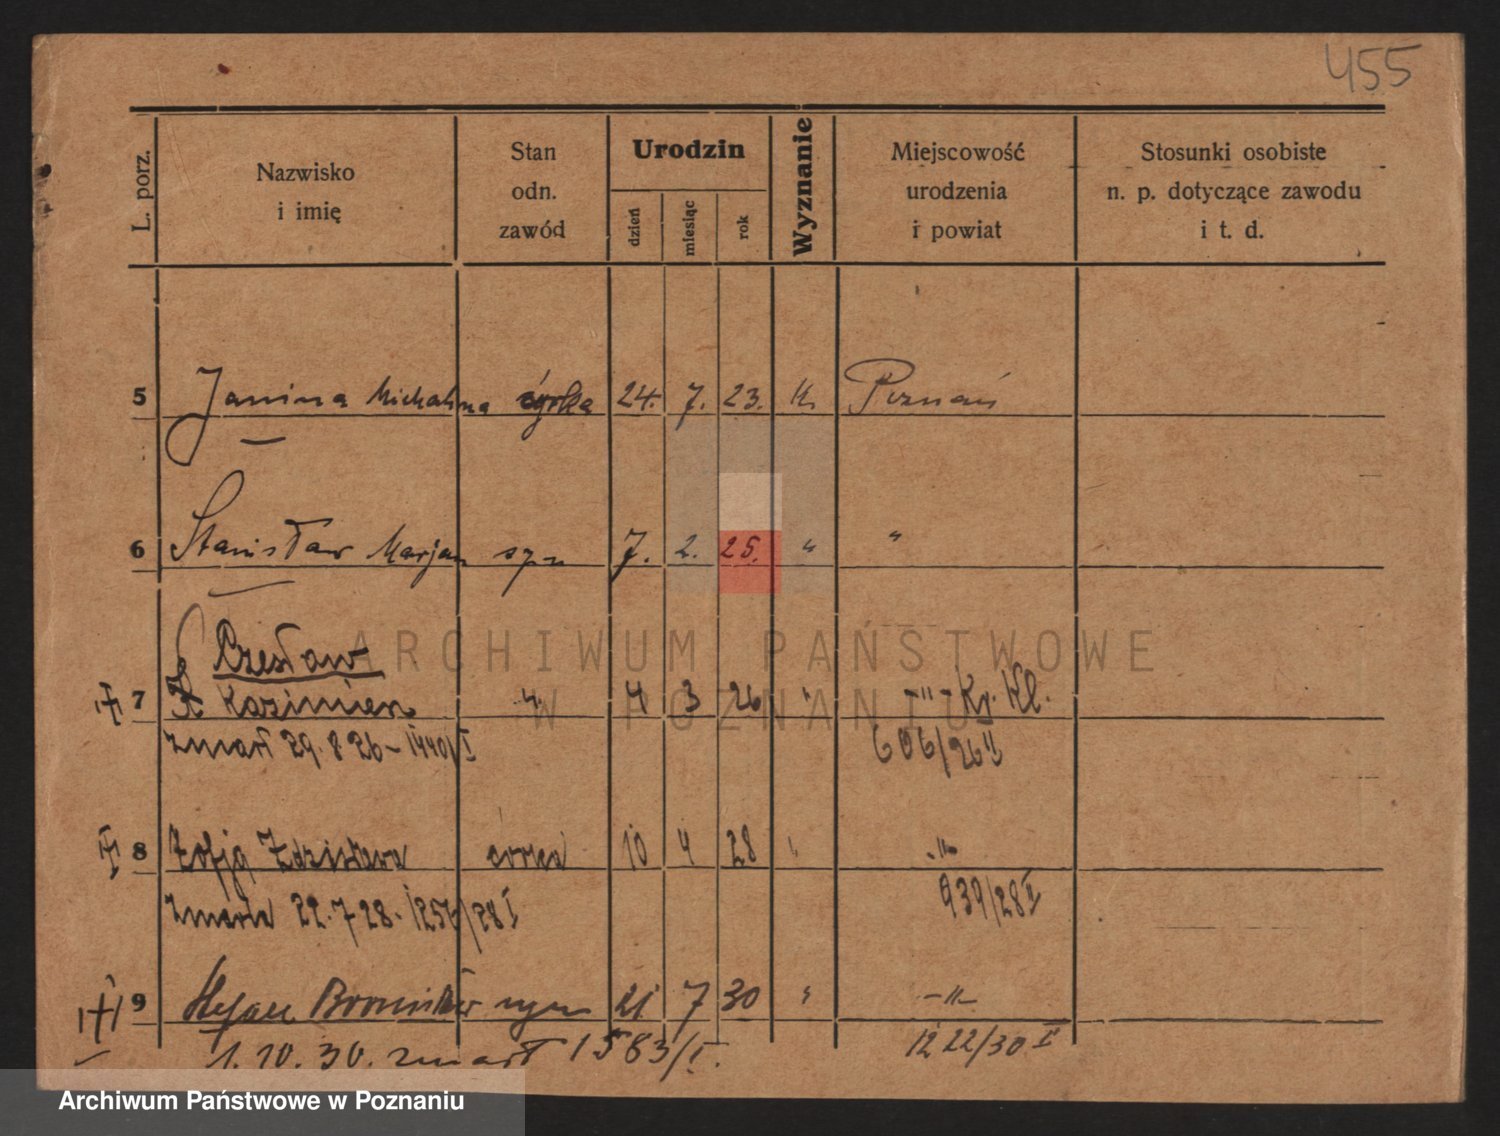 455
L. porz.
Nazwisko
i imię
Stan
odn.
zawód
Urodzin
dzień
miesiąc
rok
Wyznanie
Miejscowość
urodzenia
i powiat
Stosunki osobiste
n. p. dotyczące zawodu
i t. d.
5 Janina Michalina córka 24. 7. 23. K. Poznań
6 Stanisław Marjan syn 7. 2. 25. " "
Czesław
7 Kazimierz " 4 3 26 " -"- Kr. Kl.
zmarł 29.8.26 - 1440/I 606/26 II
8 Zofja Zdzisława córka 10 4 28 " -"-
zmarła 22.7.28. 1256/28 I 939/28 I
9 Stefan Bronisław syn 21 7 30 " -"-
1.10.30. zmarł 1583/I. 1222/30 I
ARCHIWUM PAŃSTWOWE
W POZNANIU
Archiwum Państwowe w Poznaniu